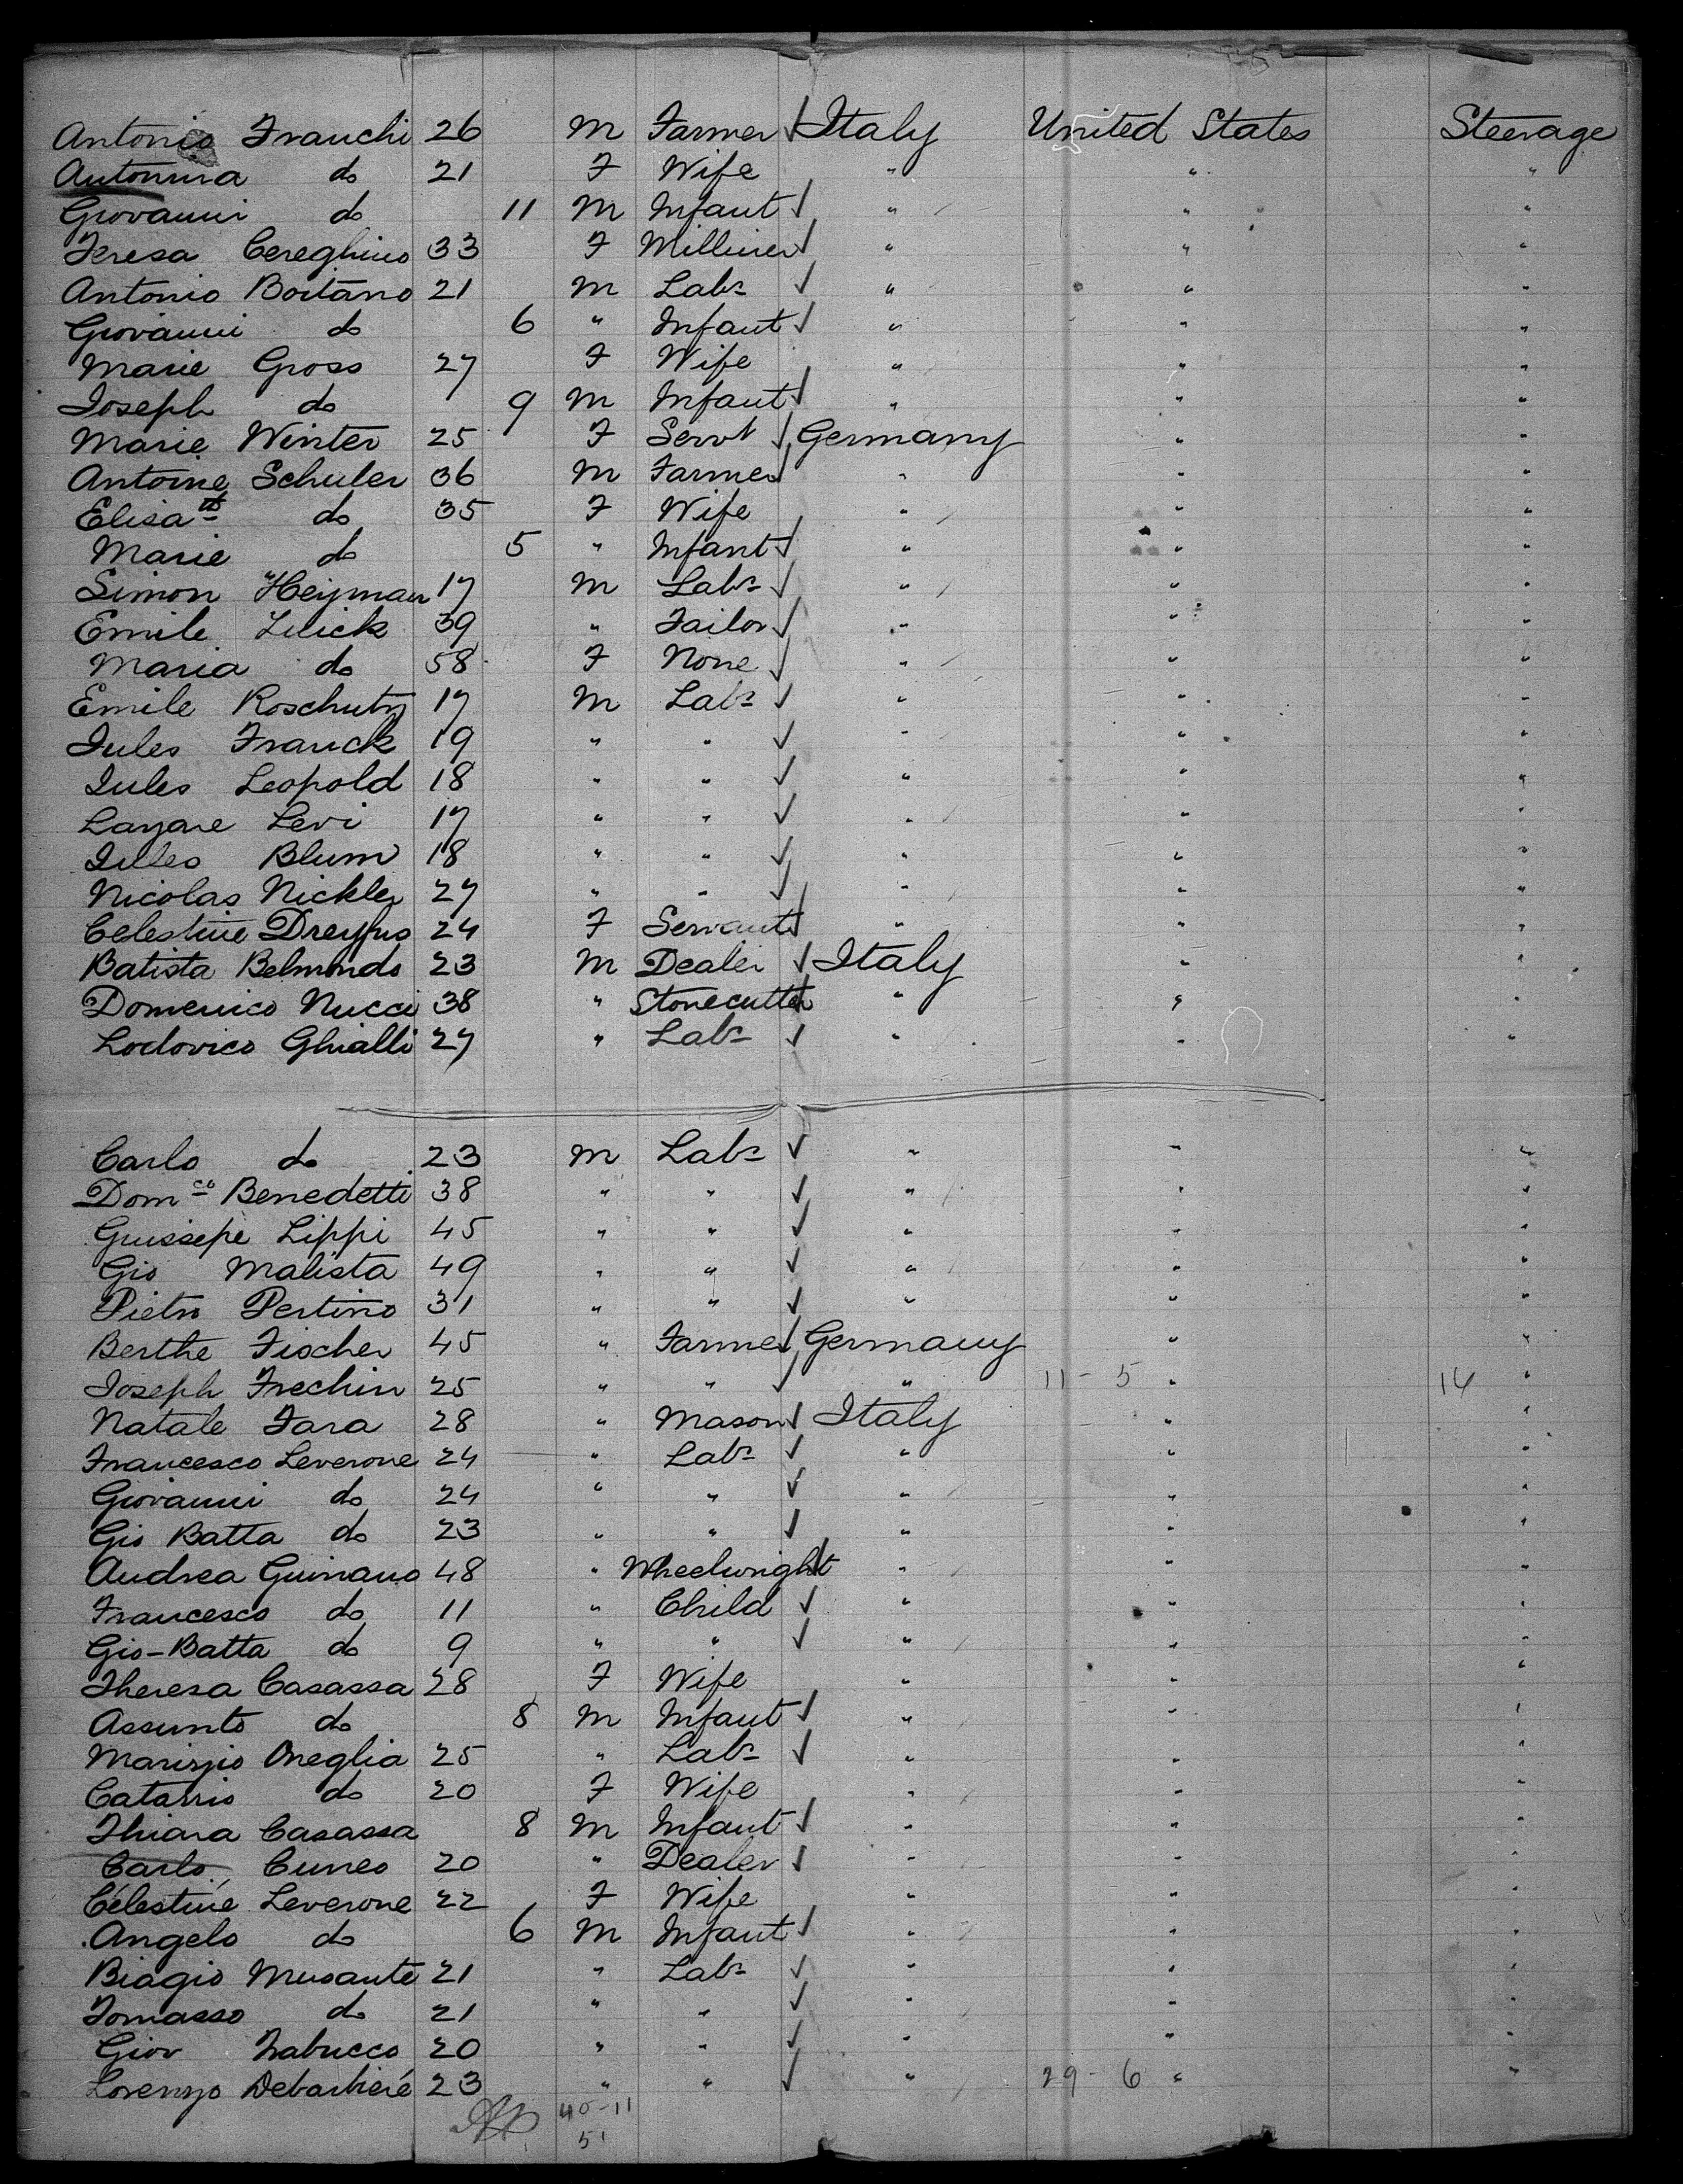 Antonio Franchi 26 M Farmer Italy United States Steerage
Antonina do 21 F Wife " " "
Giovanni do 11 M Infant " " "
Teresa Cereghino 33 F Milliner " " "
Antonio Boitano 21 M Labr " " "
Giovanni do 6 " Infant " " "
Marie Gross 27 F Wife " " "
Joseph do 9 M Infant " " "
Marie Winter 25 F Servt Germany " "
Antoine Schuler 36 M Farmer " " "
Elisath do 35 F Wife " " "
Marie do 5 " Infant " " "
Simon Heyman 17 M Labr " " "
Emile Luick 39 " Tailor " " "
Maria do 58 F None " " "
Emile Roschutz 17 M Labr " " "
Jules Franck 19 " " " " "
Jules Leopold 18 " " " " "
Lazare Levi 17 " " " " "
Jules Blum 18 " " " " "
Nicolas Nickler 27 " " " " "
Celestine Dreyfus 24 F Servant " " "
Batista Belmondo 23 M Dealer Italy " "
Domenico Nucci 38 " Stonecutter " " "
Lodovico Ghialli 27 " Labr " " "
Carlo do 23 M Labr " " "
Domco Benedetti 38 " " " " "
Guissepe Lippi 45 " " " " "
Gio Malista 49 " " " " "
Pietro Pertino 31 " " " " "
Berthe Fischer 45 " Farmer Germany " "
Joseph Frechin 25 " " " 11-5 " 14 "
Natale Fara 28 " Mason Italy " "
Francesco Leverone 24 " Labr " " "
Giovanni do 24 " " " " "
Gio Batta do 23 " " " " "
Andrea Guinano 48 " Wheelwright " " "
Francesco do 11 " Child " " "
Gio-Batta do 9 " " " " "
Theresa Casassa 28 F Wife " " "
Assunto do 8 M Infant " " "
Marizio Oneglia 25 " Labr " " "
Catarrio do 20 F Wife " " "
Thiara Casassa 8 M Infant " " "
Carlo Cuneo 20 " Dealer " " "
Célestine Leverone 22 F Wife " " "
Angelo do 6 M Infant " " "
Biagio Musante 21 " Labr " " "
Tomasso do 21 " " " " "
Giov Trabucco 20 " " " " "
Lorenzo Debarbieré 23 " " " 29-6 " "
40-11
51